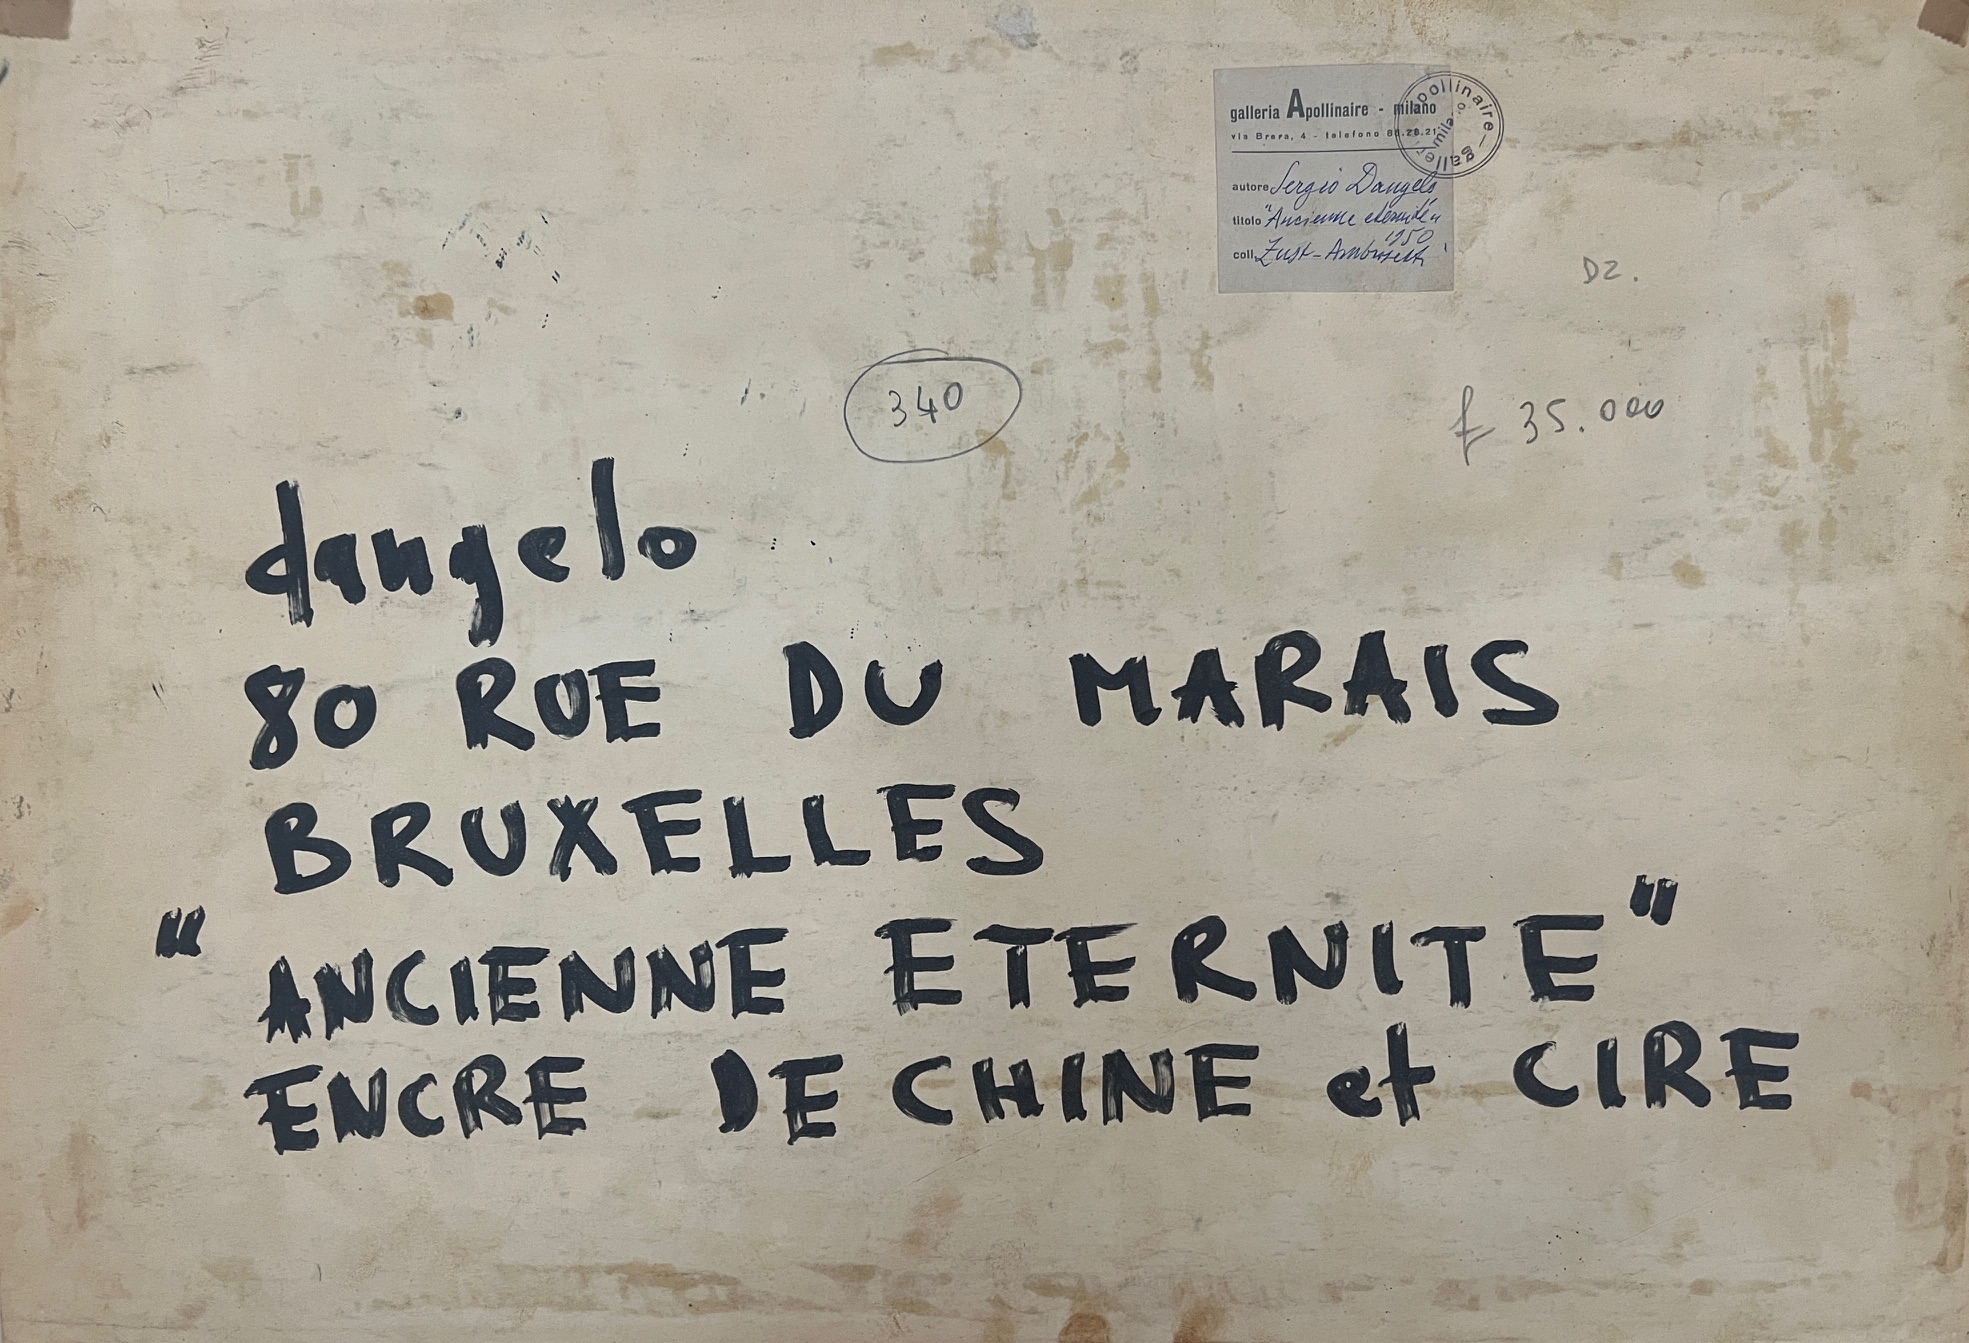 galleria Apollinaire - milano
via Brera, 4 - telefono 86.28.21
autore Sergio Dangelo
titolo "Ancienne eternité"
1950
coll. Zust-Ambrosetti
apollinaire - galleria
milano
D2.
340
£ 35.000
dangelo
80 RUE DU MARAIS
BRUXELLES
"ANCIENNE ETERNITE"
ENCRE DE CHINE et CIRE